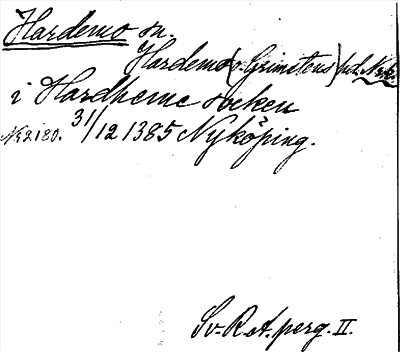 Hardemo sn.
Hardemo (o. Grimstens) hd. Nrk.
i Hardheme socken
Nr 2180. 31/12 1385 Nyköping.
Sv. R.A. perg. II.